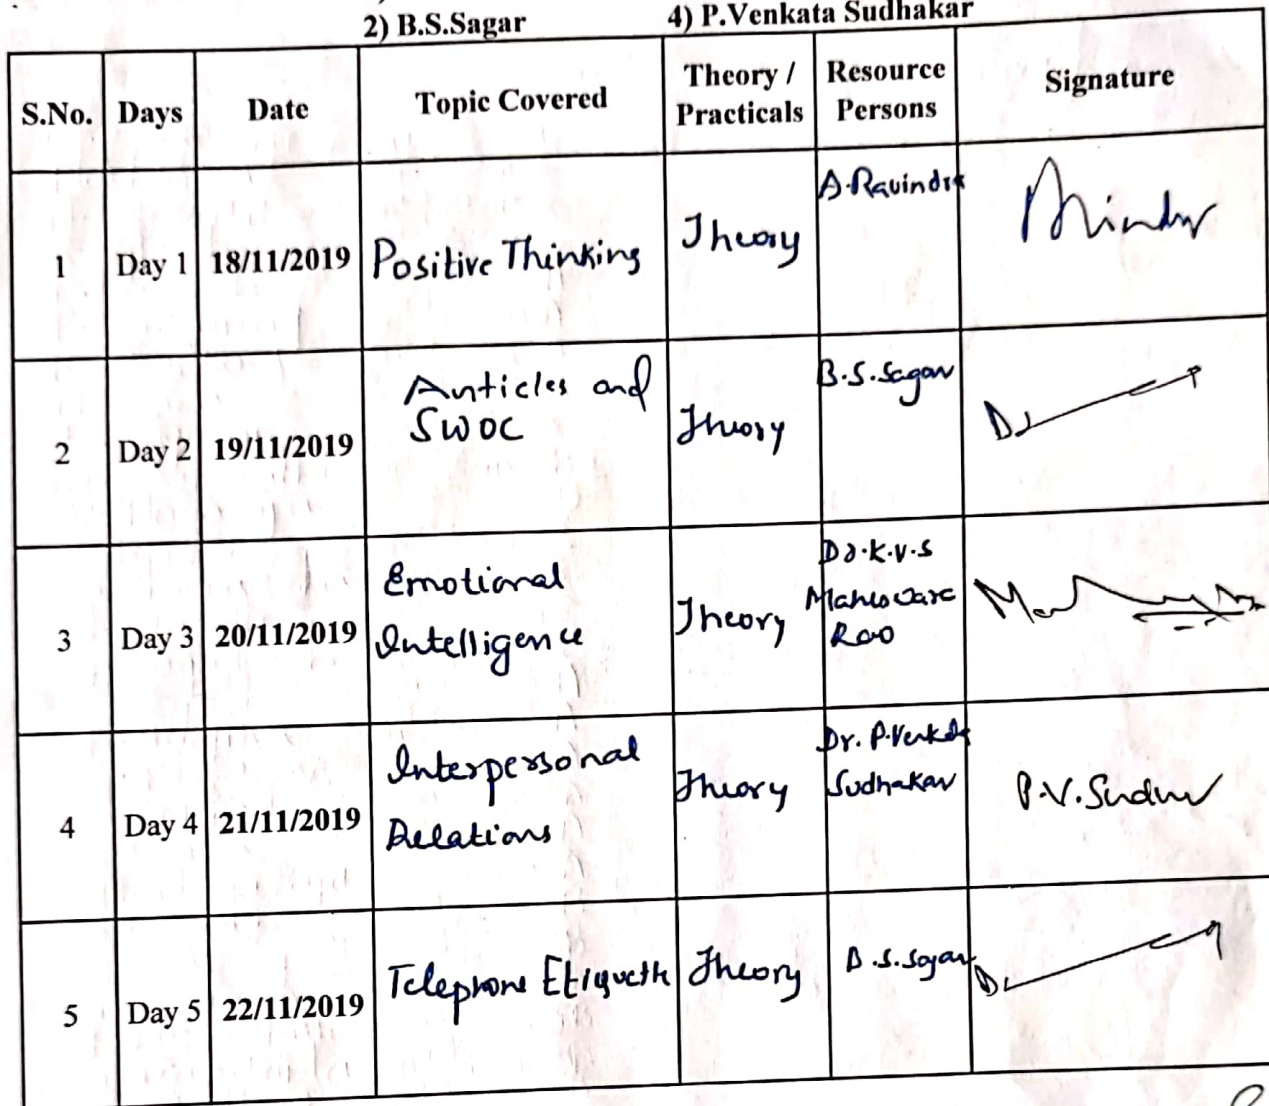 2) B.S.Sagar 4) P.Venkata Sudhakar
S.No. Days Date Topic Covered Theory / Practicals Resource Persons Signature
1 Day 1 18/11/2019 Positive Thinking Theory A.Ravindra
2 Day 2 19/11/2019 Articles and
SWOC Theory B.S.Sagar
3 Day 3 20/11/2019 Emotional
Intelligence Theory Dr.K.V.S
Maheswara
Rao
4 Day 4 21/11/2019 Interpersonal
Relations Theory Dr. P.Venkata
Sudhakar P.V.Sudhakar
5 Day 5 22/11/2019 Telephone Theory B.S.Sagar